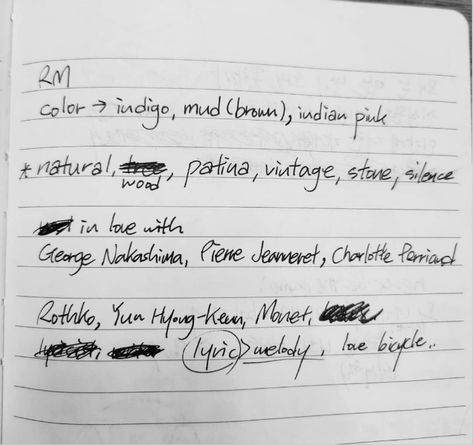 RM
color → indigo, mud (brown), indian pink
* natural, wood, patina, vintage, stone, silence
in love with
George Nakashima, Pierre Jeanneret, Charlotte Perriand
Rothko, Yun Hyong-Keun, Monet,
(lyric) > melody, love bicycle..